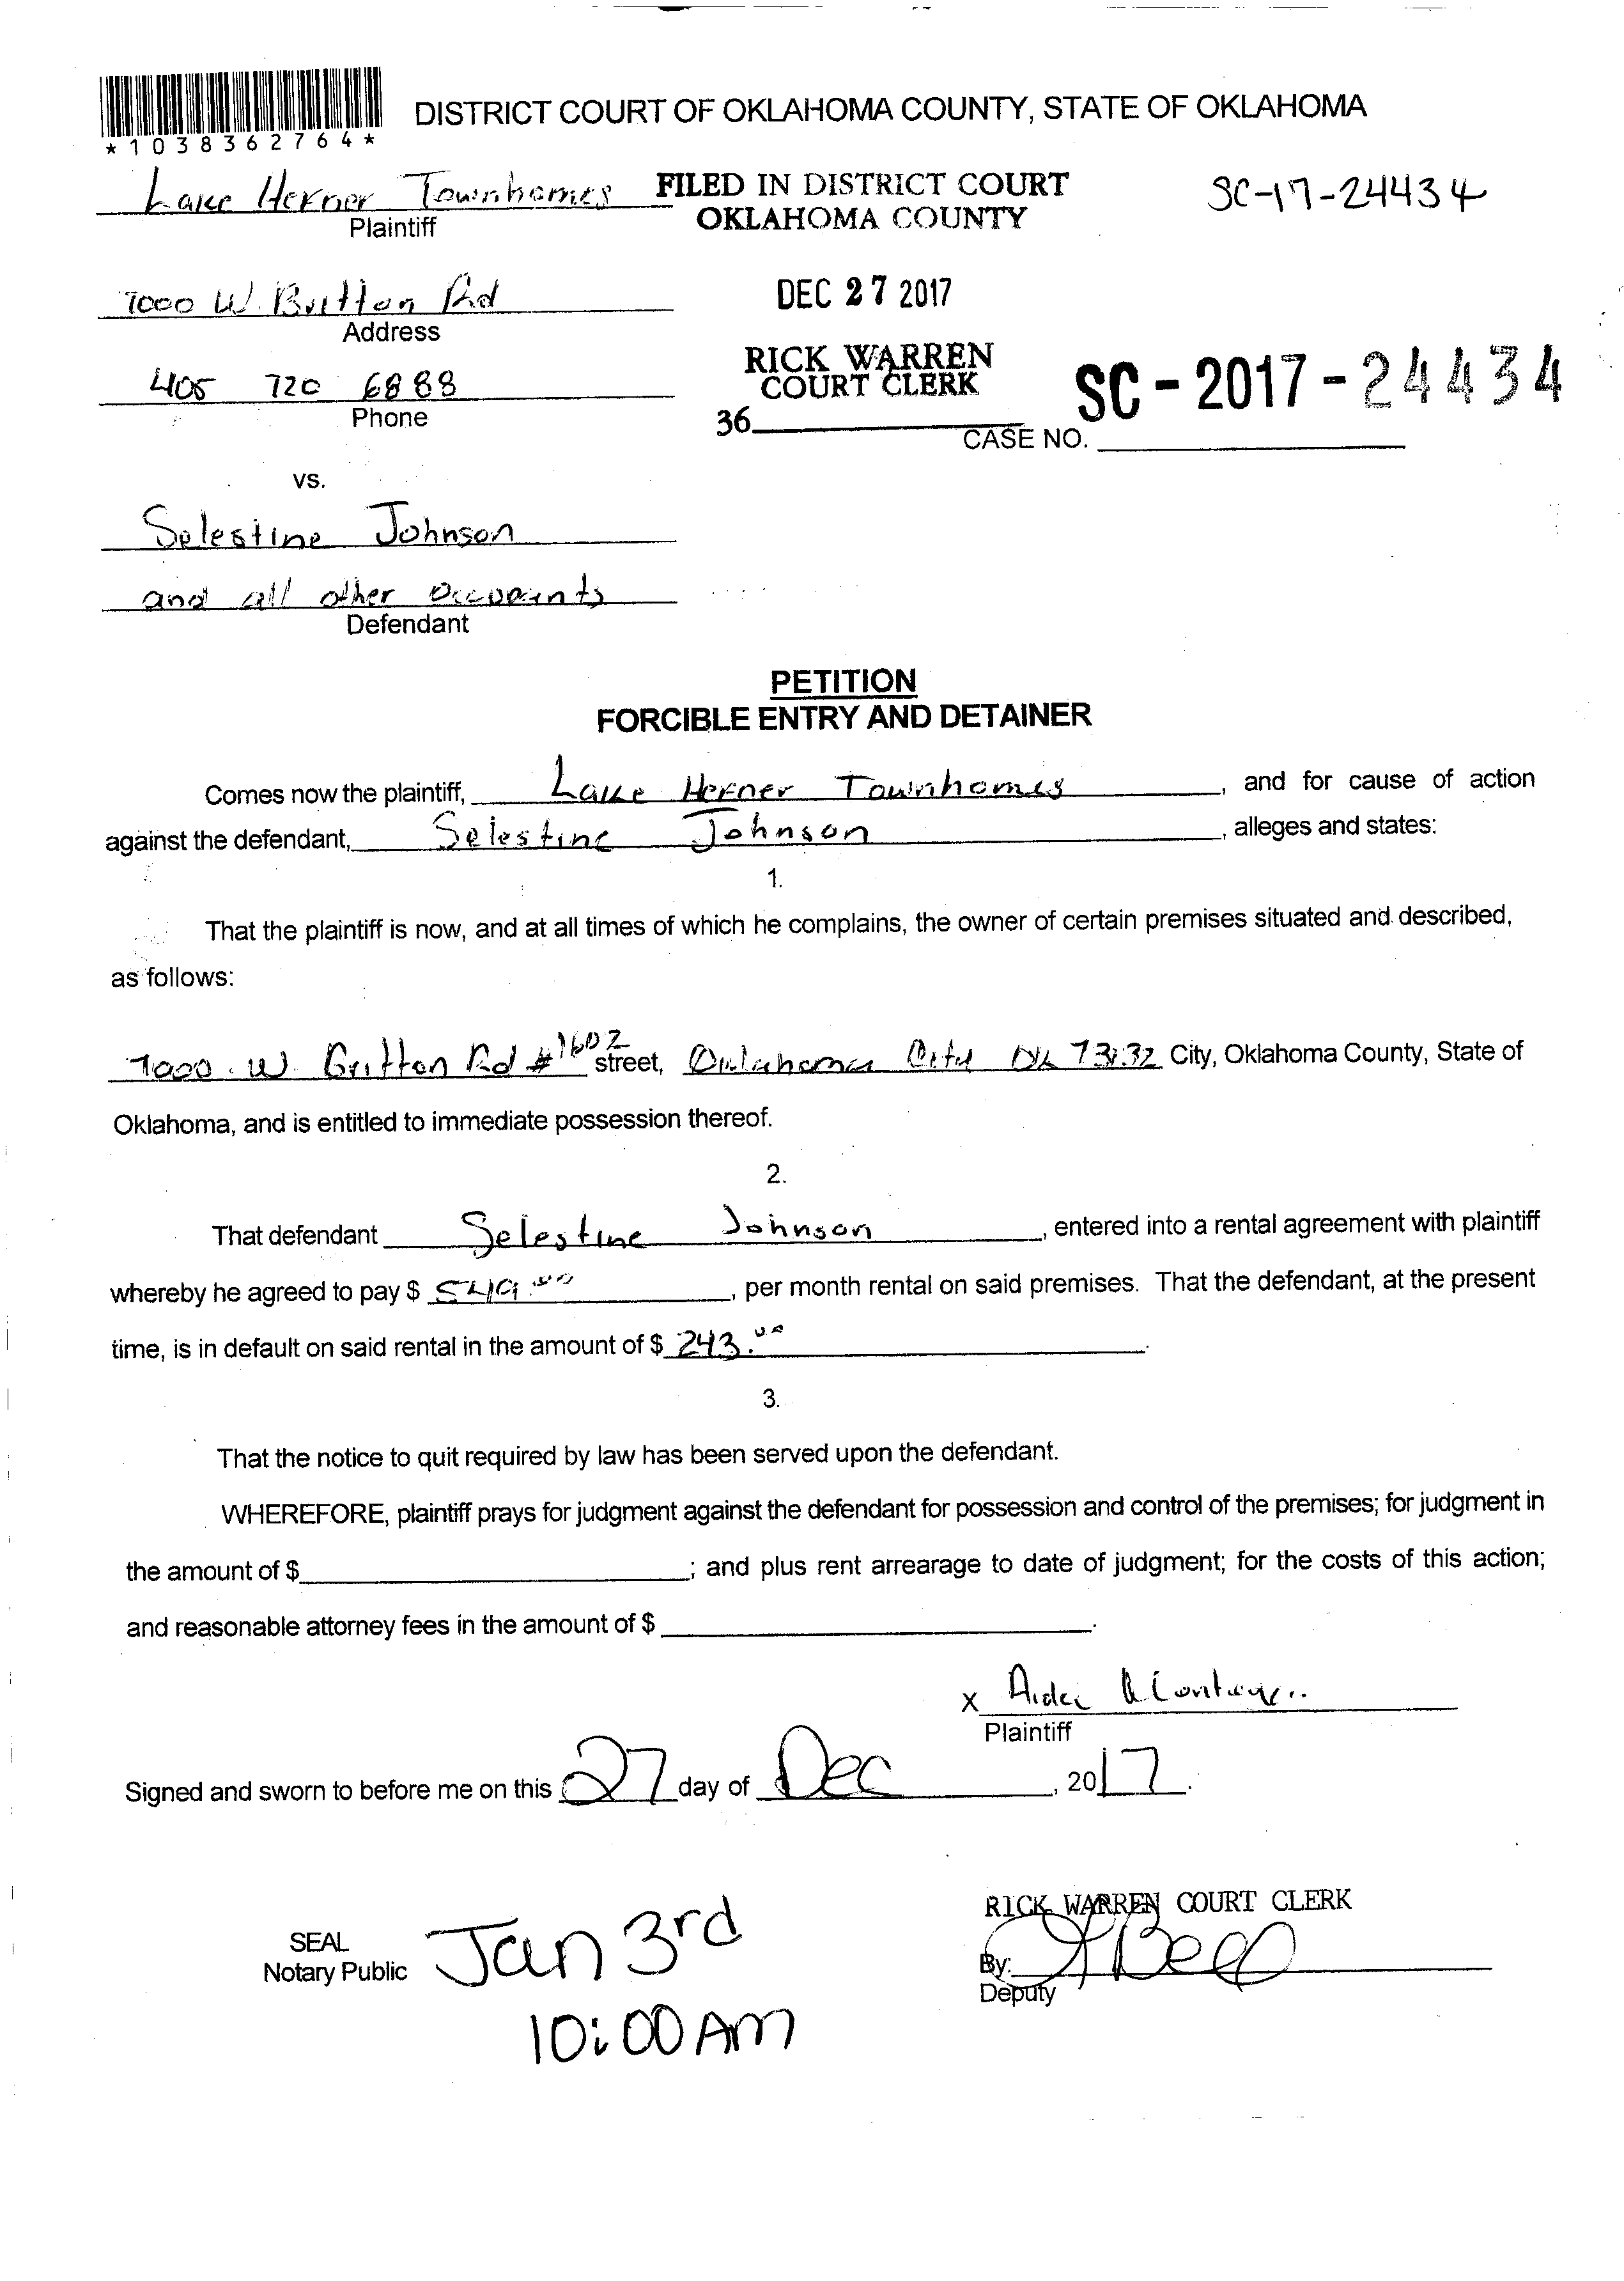 DISTRICT COURT OF OKLAHOMA COUNTY, STATE OF OKLAHOMA
*1038362764*
Lake Hefner Townhomes
Plaintiff
FILED IN DISTRICT COURT
OKLAHOMA COUNTY
SC-17-24434
7000 W. Britton Rd
Address
DEC 27 2017
405 720 6888
Phone
RICK WARREN
COURT CLERK
36
SC-2017-24434
CASE NO.
vs.
Selestine Johnson
and all other occupants
Defendant
PETITION
FORCIBLE ENTRY AND DETAINER
Comes now the plaintiff, Lake Hefner Townhomes, and for cause of action
against the defendant, Selestine Johnson, alleges and states:
1.
That the plaintiff is now, and at all times of which he complains, the owner of certain premises situated and described,
as follows:
7000 W. Britton Rd #1602 street, Oklahoma City OK 73132 City, Oklahoma County, State of
Oklahoma, and is entitled to immediate possession thereof.
2.
That defendant Selestine Johnson, entered into a rental agreement with plaintiff
whereby he agreed to pay $ 549.00, per month rental on said premises. That the defendant, at the present
time, is in default on said rental in the amount of $ 243.00.
3.
That the notice to quit required by law has been served upon the defendant.
WHEREFORE, plaintiff prays for judgment against the defendant for possession and control of the premises; for judgment in
the amount of $; and plus rent arrearage to date of judgment; for the costs of this action;
and reasonable attorney fees in the amount of $.
x
Plaintiff
Signed and sworn to before me on this 27 day of Dec, 2017.
RICK WARREN COURT CLERK
SEAL
Notary Public
Jan 3rd
10:00 AM
By:
Deputy